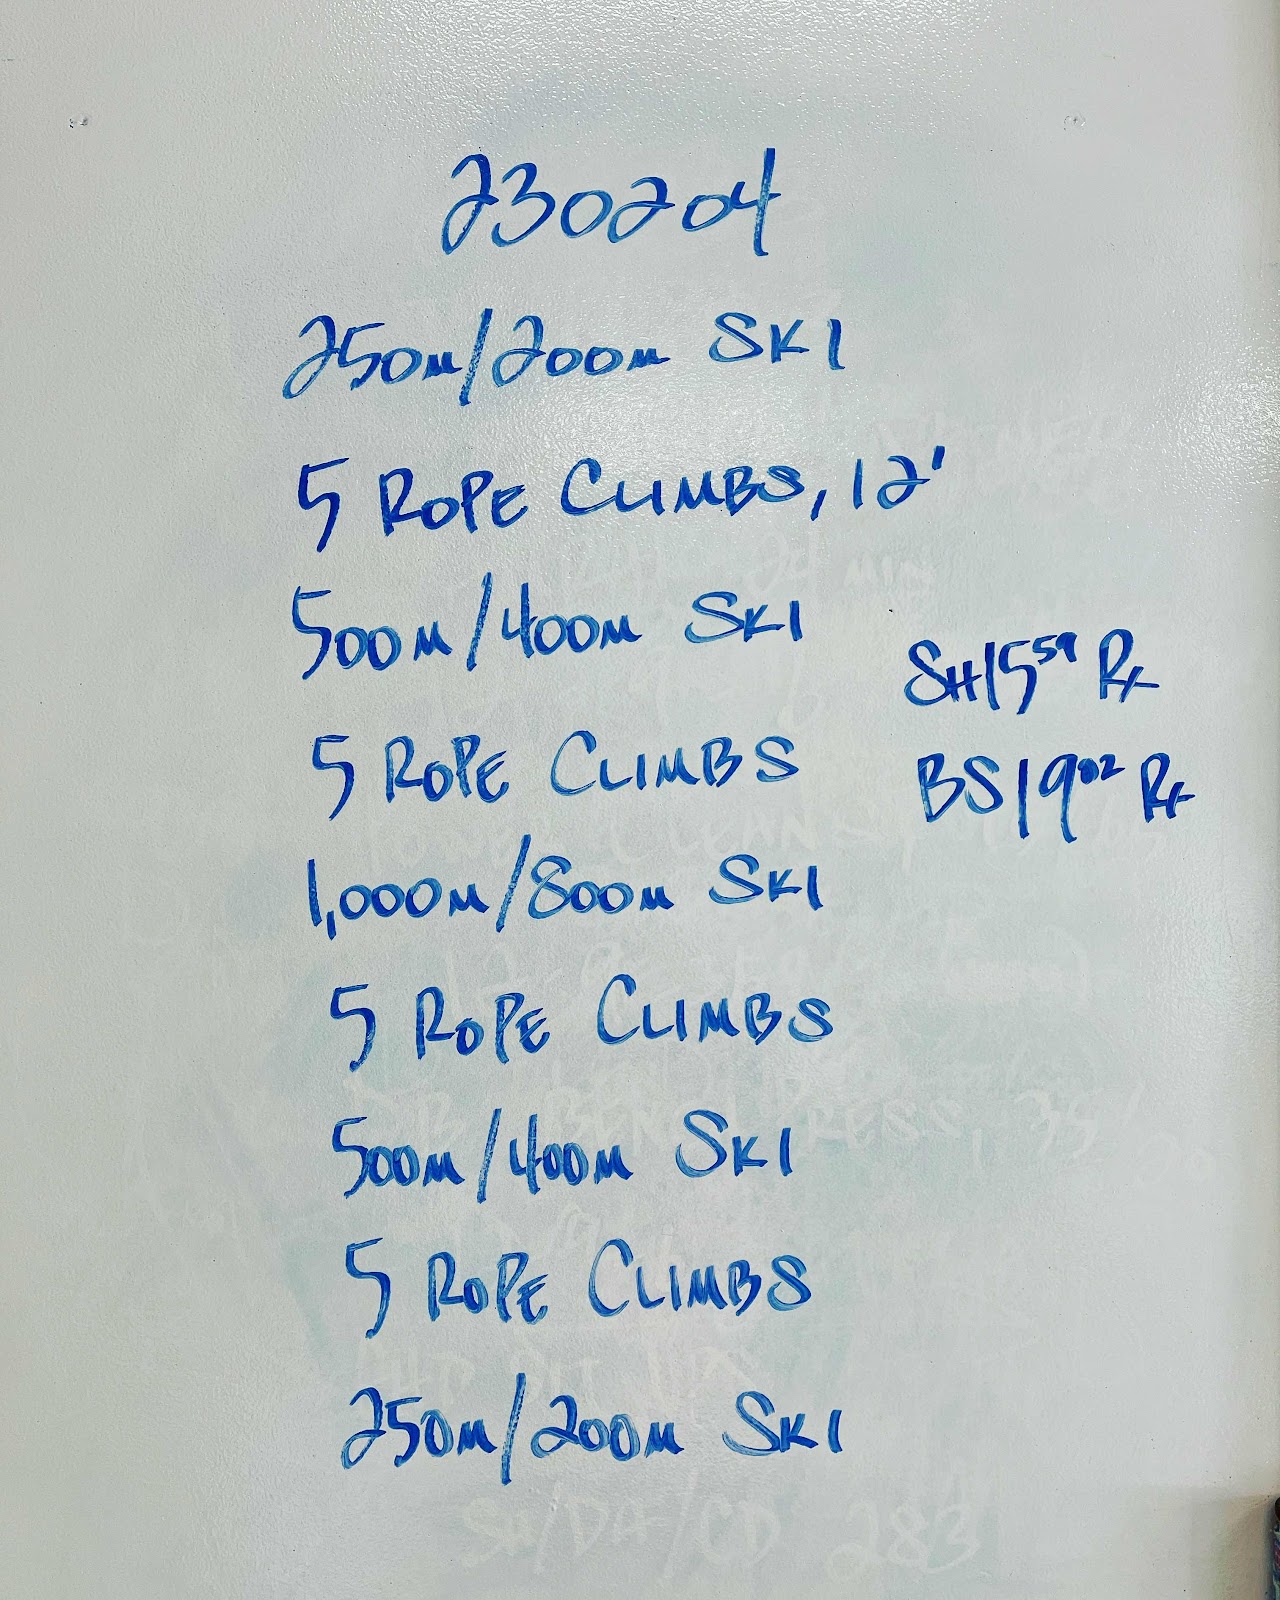 230204
250m/200m SKI
5 ROPE CLIMBS, 12'
500m/400m SKI
SH 15⁵⁹ Rx
5 ROPE CLIMBS
BS 19⁰² Rx
1,000m/800m SKI
5 ROPE CLIMBS
500m/400m SKI
5 ROPE CLIMBS
250m/200m SKI
SH/DH/CD 283